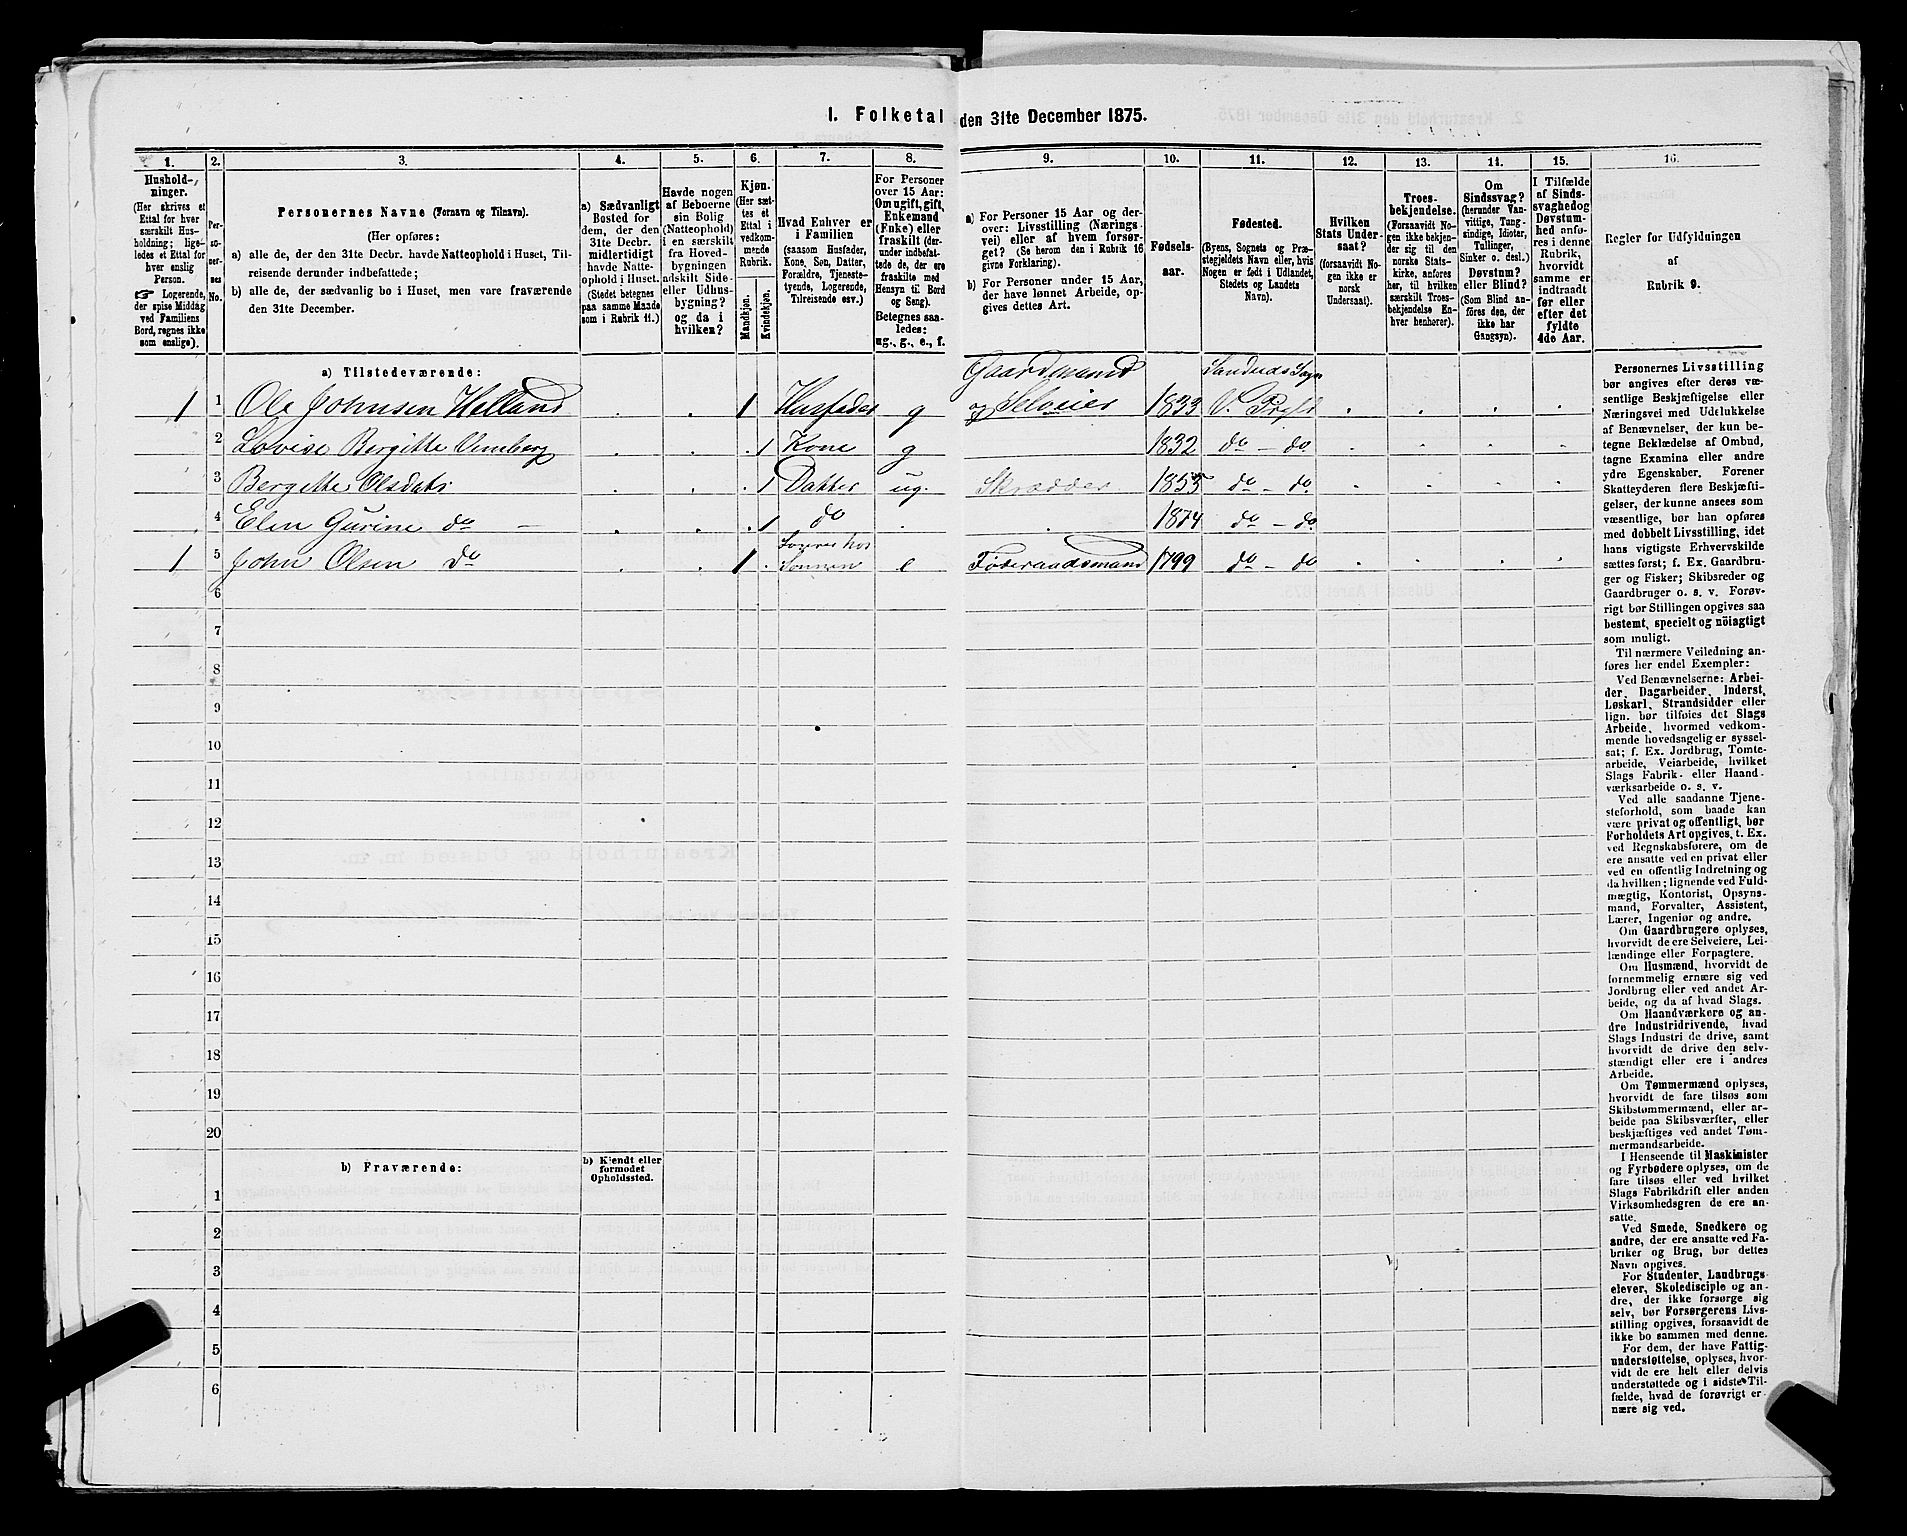 I. Folketal den 31te December 1875.
1. 2. 3. 4. 5. 6. 7. 8. 9. 10. 11. 12. 13. 14. 15. 16.
Hushold-
ninger.
(Her skrives et
Ettal for hver
særskilt Hus-
holdning; lige-
ledes et Ettal for
hver enslig
Person.
☞ Logerende,
der spise Middag
ved Familiens
Bord, regnes ikke
som enslige).
Per-
so-
ner-
nes
No.
Personernes Navne (Fornavn og Tilnavn).
(Her opføres:
a) alle de, der den 31te Decbr. havde Natteophold i Huset, Til-
reisende derunder indbefattede;
b) alle de, der sædvanlig bo i Huset, men vare fraværende
den 31te December.
a) Sædvanligt
Bosted for
dem, der den
31te Decbr.
midlertidigt
havde Natte-
ophold i Huset.
(Stedet betegnes
paa samme Maade
som i Rubrik 11.)
Havde nogen
af Beboerne
sin Bolig
(Natteophold)
i en særskilt
fra Hoved-
bygningen
adskilt Side-
eller Udhus-
bygning?
og da i
hvilken?
Kjøn.
(Her sæt-
tes et
Ettal i
vedkom-
mende
Rubrik.
Mandkjøn.
Kvindekjøn.
Hvad Enhver er
i Familien
(saasom Husfader,
Kone, Søn, Datter,
Forældre, Tjeneste-
tyende, Logerende,
Tilreisende osv.)
For Personer
over 15 Aar:
Om ugift, gift,
Enkemand
(Enke) eller
fraskilt (der-
under indbefat-
tede de, der ere
fraskilte med
Hensyn til Bord
og Seng).
Betegnes saa-
ledes:
ug., g., e., f.
a) For Personer 15 Aar og der-
over: Livsstilling (Nærings-
vei) eller af hvem forsør-
get? (Se herom den i Rubrik 16
givne Forklaring).
b) For Personer under 15 Aar,
der have lønnet Arbeide, op-
gives dettes Art.
Fødsels-
aar.
Fødested.
(Byens, Sognets og Præ-
stegjeldets Navn eller, hvis
Nogen er født i Udlandet,
Stedets og Landets
Navn).
Hvilken
Stats Under-
saat?
(forsaavidt No-
gen ikke er
norsk
Undersaat).
Troes-
bekjendelse.
(Forsaavidt No-
gen ikke bekjen-
der sig til den
norske Stats-
kirke, anføres
her, til hvilken
særskilt Troes-
bekjendelse En-
hver henhører).
Om
Sindssvag?
(herunder Van-
vittige, Tung-
sindige, Idioter,
Tullinger,
Sinker o. desl.)
Døvstum?
eller Blind?
(Som Blind an-
føres den, der
ikke har
Gangsyn).
I Tilfælde
af Sinds-
svaghed og
Døvstum-
hed anfø-
res i denne
Rubrik,
hvorvidt
samme er
indtraadt
før eller
efter det
fyldte
4de Aar.
Regler for Udfyldningen
af
Rubrik 9.
a) Tilstedeværende:
Gaardmand Sandeids Sogn
1 1 Ole Johnsen Helland . . 1 Husfader g og Selveier 1833 V. Prgld . . . .
2 Lovise Bergitte . . . 1 Kone g 1832 do - do . . . .
3 Bergitte Olsdatr . . . 1 Datter ug. Skrædder 1855 do - do . . . .
4 Elen Gurine do - . . . 1 do . . 1874 do - do . . . .
1 5 John Olsen do . . 1 . hos Sønnen e Føderaadsmand 1799 do - do . . . .
6
7
8
9
10
11
12
13
14
15
16
17
18
19
20
b) Fraværende:
b) Kjendt eller
formodet
Opholdssted.
1
2
3
4
5
6
Personernes Livsstilling
bør angives efter deres væ-
sentlige Beskjæftigelse eller
Næringsvei med Udelukkelse
af Benævnelser, der kun be-
tegne Beklædelse af Ombud,
tagne Examina eller andre
ydre Egenskaber. Forener
Skatteyderen flere Beskjæfti-
gelser, der kunne ansees som
væsentlige, bør han opføres
med dobbelt Livsstilling, idet
hans vigtigste Erhvervskilde
sættes først; f. Ex. Gaardbru-
ger og Fisker; Skibsreder og
Gaardbruger o. s. v. Forøv-
rigt bør Stillingen opgives saa
bestemt, specielt og nöiagtigt
som muligt.
Til nærmere Veiledning an-
føres her endel Exempler:
Ved Benævnelserne: Arbei-
der, Dagarbeider, Inderst,
Løskarl, Strandsidder eller
lign. bør tilføies det Slags
Arbeide, hvormed vedkom-
mende hovedsagelig er syssel-
sat; f. Ex. Jordbrug, Tomte-
arbeide, Veiarbeide, hvilket
Slags Fabrik- eller Haand-
værksarbeide o. s. v.
Ved alle saadanne Tjene-
steforhold, som baade kan
være privat og offentligt, bør
Forholdets Art opgives, t. Ex.
ved Regnskabsførere, om de
ere ansatte ved en privat eller
ved en offentlig Indretning og
da hvilken; lignende ved Fuld-
mægtig, Kontorist, Opsyns-
mand, Forvalter, Assistent,
Lærer, Ingeniør og andre.
Om Gaardbrugere oplyses,
hvorvidt de ere Selveiere, Lei-
lændinge eller Forpagtere.
Om Husmænd, hvorvidt de
fornemmelig ernære sig ved
Jordbrug eller ved andet Ar-
beide, og da af hvad Slags.
Om Haandværkere og an-
dre Industridrivende, hvad
Slags Industri de drive, samt
hvorvidt de drive den selv-
stændigt eller ere i andres
Arbeide.
Om Tømmermænd oplyses,
hvorvidt de fare tilsøs som
Skibstømmermænd, eller ar-
beide paa Skibsværfter, eller
beskjæftiges ved andet Tøm-
mermandsarbeide.
I Henseende til Maskinister
og Fyrbødere oplyses, om de
fare tilsøs eller ved hvilket
Slags Fabrikdrift eller anden
Virksomhedsgren de ere an-
satte.
Ved Smede, Snedkere og
andre, der ere ansatte ved Fa-
briker og Brug, bør dettes
Navn opgives.
For Studenter, Landbrugs-
elever, Skoledisciple og an-
dre, der ikke forsørge sig
selv, bør Forsørgerens Livs-
stilling opgives, forsaavidt de
ikke bo sammen med denne.
For dem, der have Fattig-
understøttelse, oplyses, hvor-
vidt de ere helt eller delvis
understøttede og i sidste Til-
fælde, hvad de forøvrigt er-
nære sig ved.